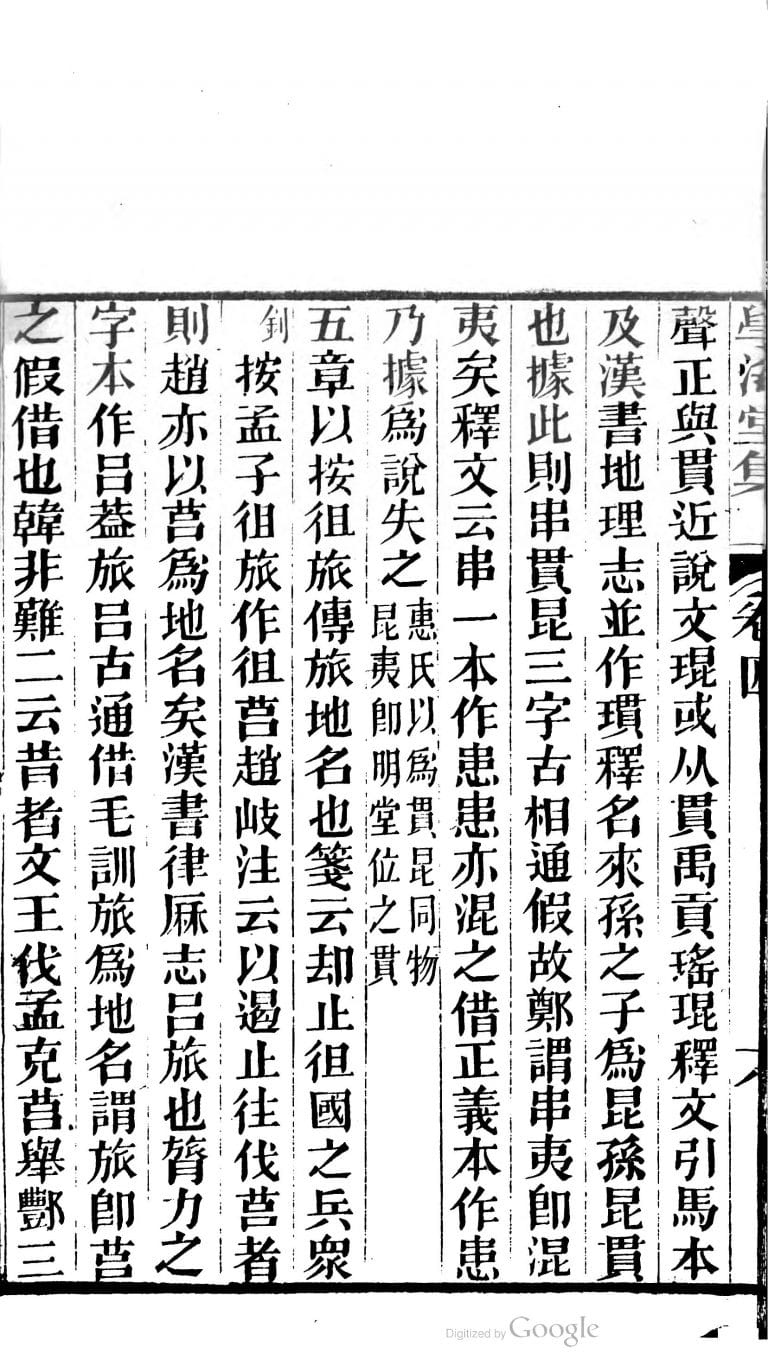 學海堂集
卷四
聲正與貫近說文琨或从貫禹貢瑤琨釋文引馬本
及漢書地理志並作瑻釋名來孫之子爲昆孫昆貫
也據此則串貫昆三字古相通假故鄭謂串夷卽混
夷矣釋文云串一本作患患亦混之借正義本作患
乃據爲說失之惠氏以爲貫昆同物
昆夷卽明堂位之貫
五章以按徂旅傳旅地名也箋云却止徂國之兵眾
釗按孟子徂旅作徂莒趙岐注云以遏止往伐莒者
則趙亦以莒爲地名矣漢書律厤志呂旅也膂力之
字本作呂葢旅呂古通借毛訓旅爲地名謂旅卽莒
之假借也韓非難二云昔者文王伐孟克莒舉酆三
Digitized by Google